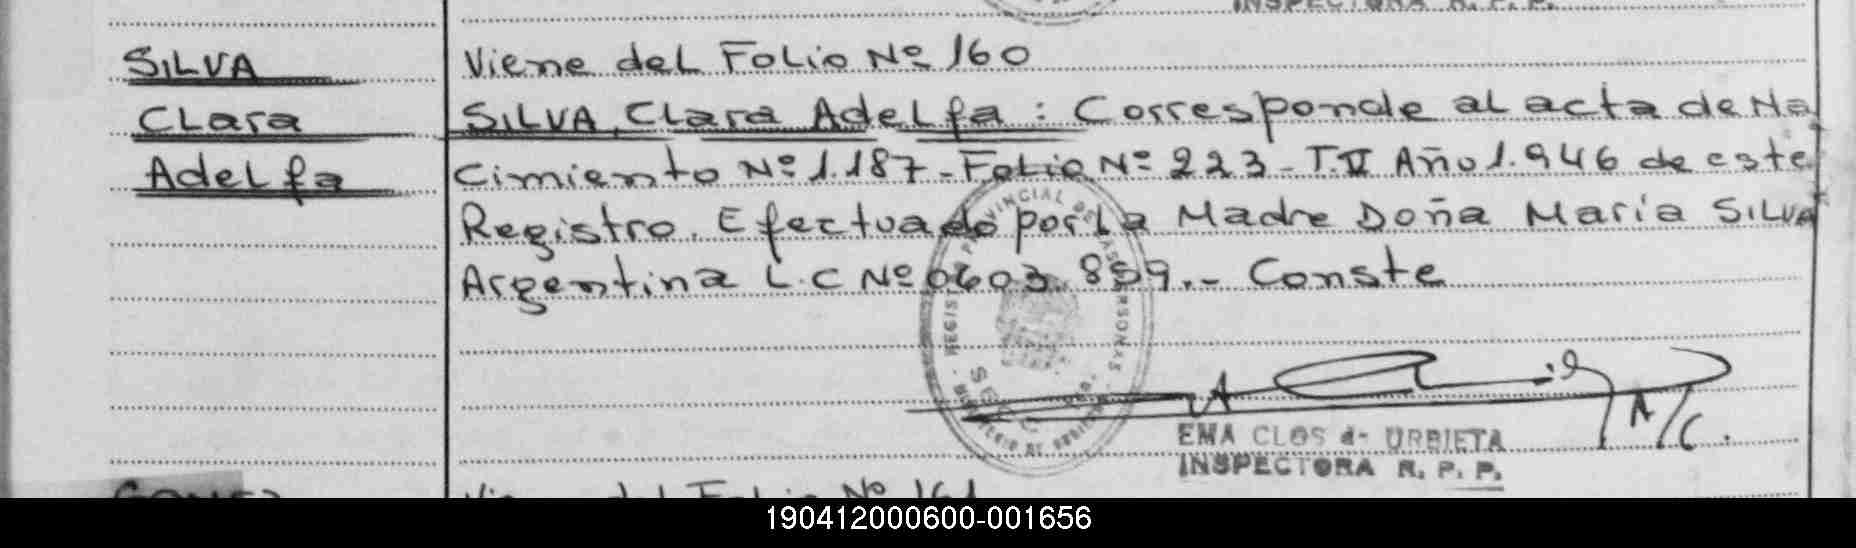 INSPECTORA R. P. P.
SILVA
Clara
Adelfa
Viene del Folio Nº 160
SILVA, Clara Adelfa: Corresponde al acta de Na
cimiento Nº 1.187 - Folio Nº 223 - T. II Año 1.946 de este
Registro. Efectuado por la Madre Doña María SILVA
Argentina L.C Nº 0603.859.- Conste
REGISTRO PROVINCIAL DE LAS PERSONAS
A/C.
EMA CLOS de URBIETA
INSPECTORA R. P. P.
Viene del Folio Nº 161
190412000600-001656